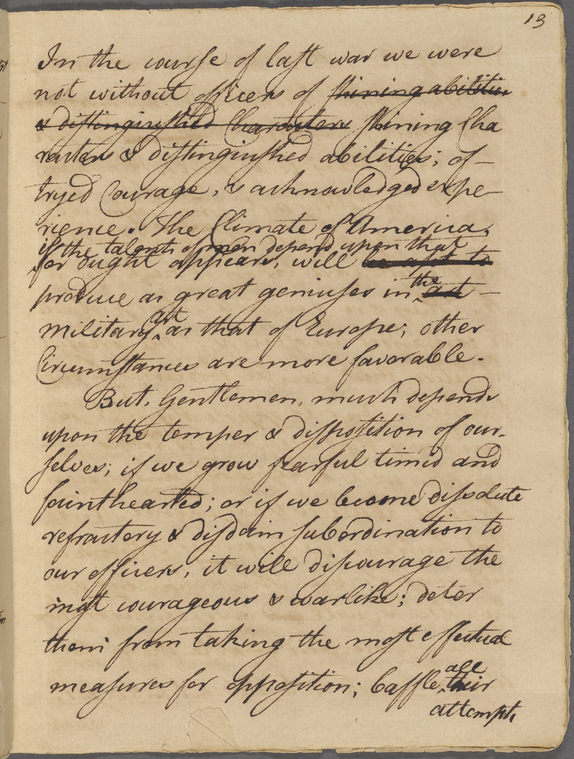 13
In the course of last war we were
not without officers of shining abilities
& distinguished Characters shining Cha
racters & distinguished abilities; of
tryed Courage, & acknowledged expe-
rience. The Climate of America,
if the talents of men depend upon that
for ought appears, will be apt to
produce as great geniuses in the art
military art as that of Europe; other
Circumstances are more favorable.
But, Gentlemen, much depends
upon the temper & disposition of our-
selves; if we grow fearful timid and
fainthearted; or if we become dissolute
refractory & disdain subordination to
our officers, it will discourage the
most courageous & warlike; deter
them from taking the most effectual
measures for opposition; baffle all their
attempts